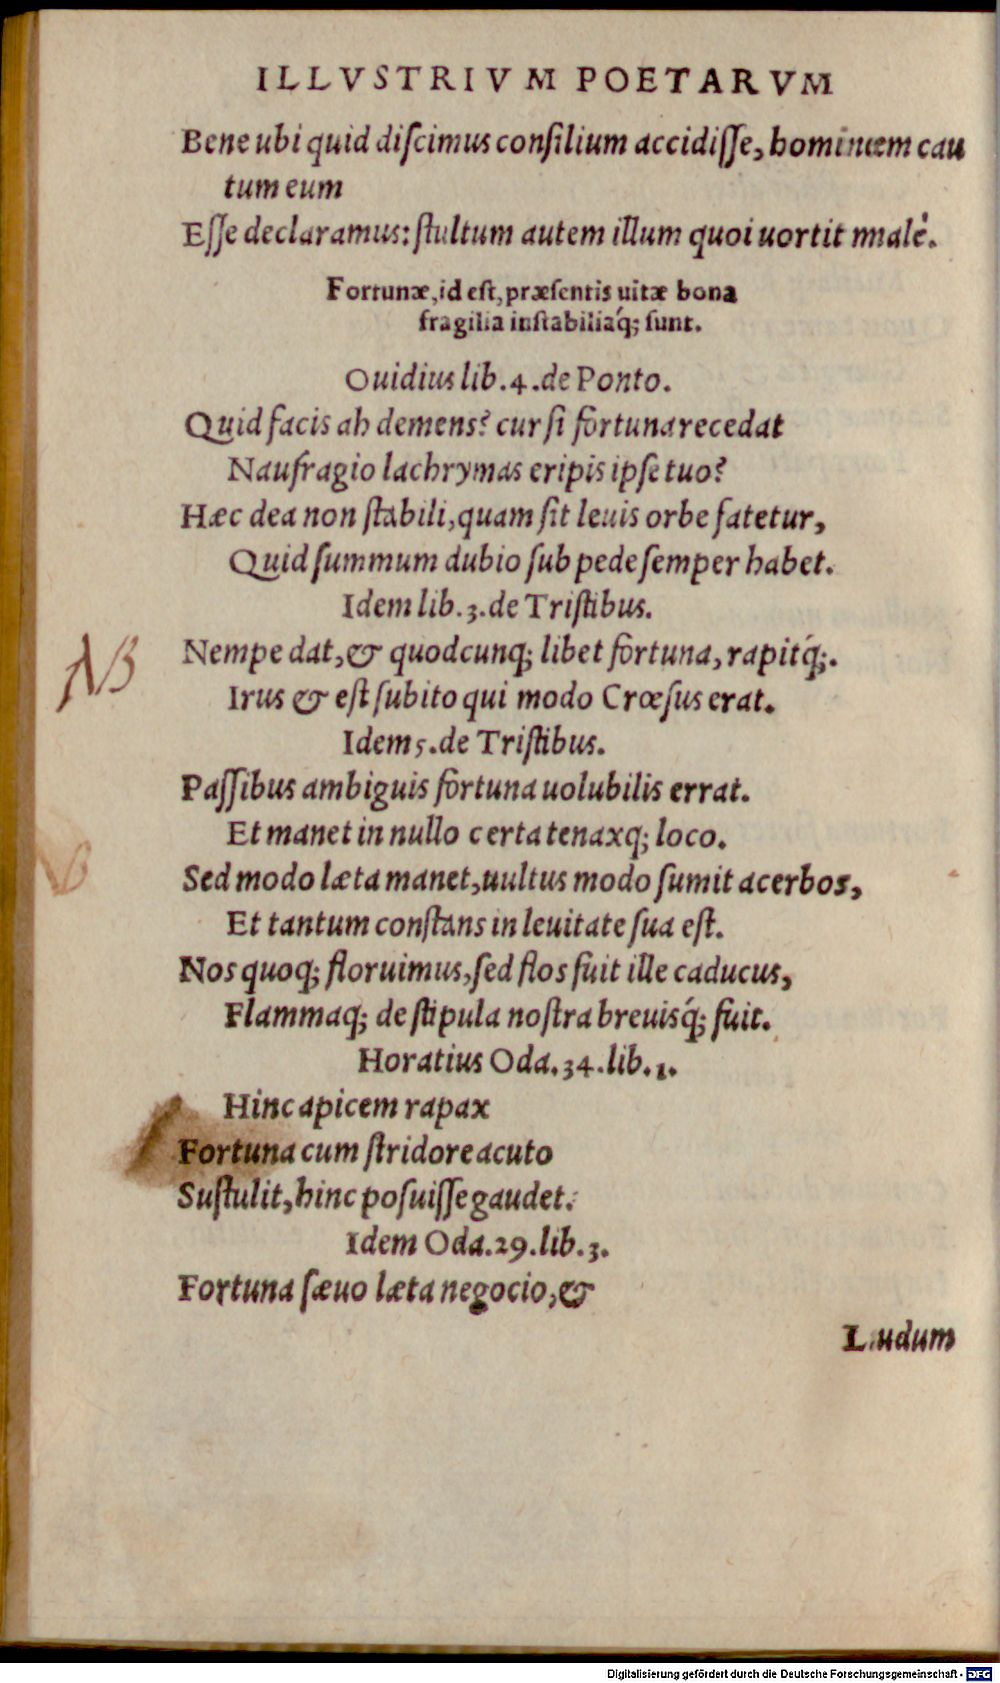 ILLVSTRIVM POETARVM
Bene ubi quid diſcimus conſilium accidiſſe, hominem cau
tum eum
Eſſe declaramus: ſtultum autem illum quoi uortit malè.
Fortunæ, id eſt, præſentis uitæ bona
fragilia inſtabiliaq́; ſunt.
Ouidius lib.4.de Ponto.
Quid facis ah demens? cur ſi fortuna recedat
Naufragio lachrymas eripis ipſe tuo?
Hæc dea non ſtabili, quam ſit leuis orbe fatetur,
Quid ſummum dubio ſub pede ſemper habet.
Idem lib.3.de Triſtibus.
NB
Nempe dat, & quodcunq; libet fortuna, rapitq́;.
Irus & eſt ſubito qui modo Crœſus erat.
Idem 5.de Triſtibus.
Paſſibus ambiguis fortuna uolubilis errat.
Et manet in nullo certa tenaxq; loco.
Sed modo læta manet, uultus modo ſumit acerbos,
Et tantum conſtans in leuitate ſua eſt.
Nos quoq; floruimus, ſed flos fuit ille caducus,
Flammaq; de ſtipula noſtra breuisq́; fuit.
Horatius Oda.34.lib.1.
Hinc apicem rapax
Fortuna cum ſtridore acuto
Suſtulit, hinc poſuiſſe gaudet.
Idem Oda.29.lib.3.
Fortuna ſæuo læta negocio, &
Ludum
Digitalisierung gefördert durch die Deutsche Forschungsgemeinschaft - DFG